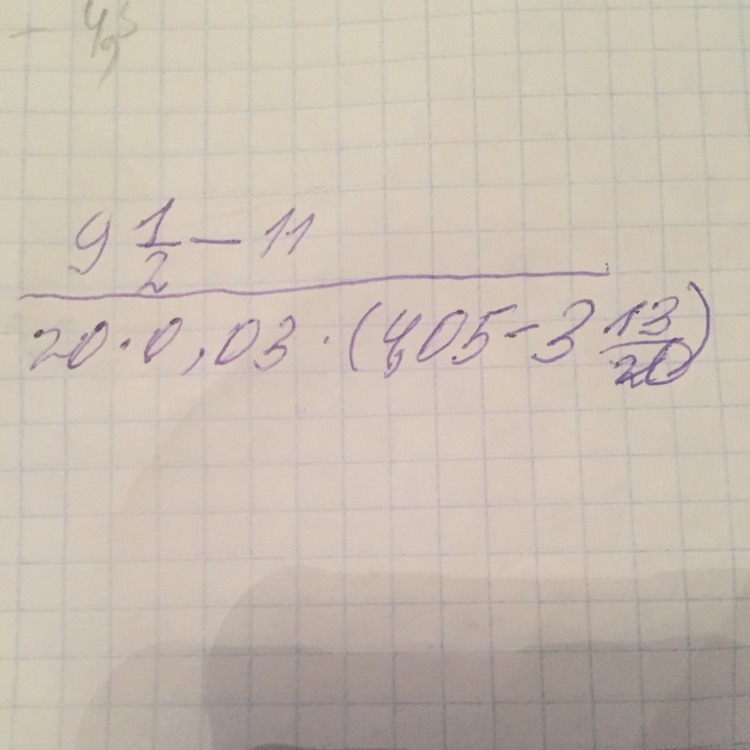 - 4,5
9 1/2 - 11
20 · 0,03 · (4,05 - 3 13/20)